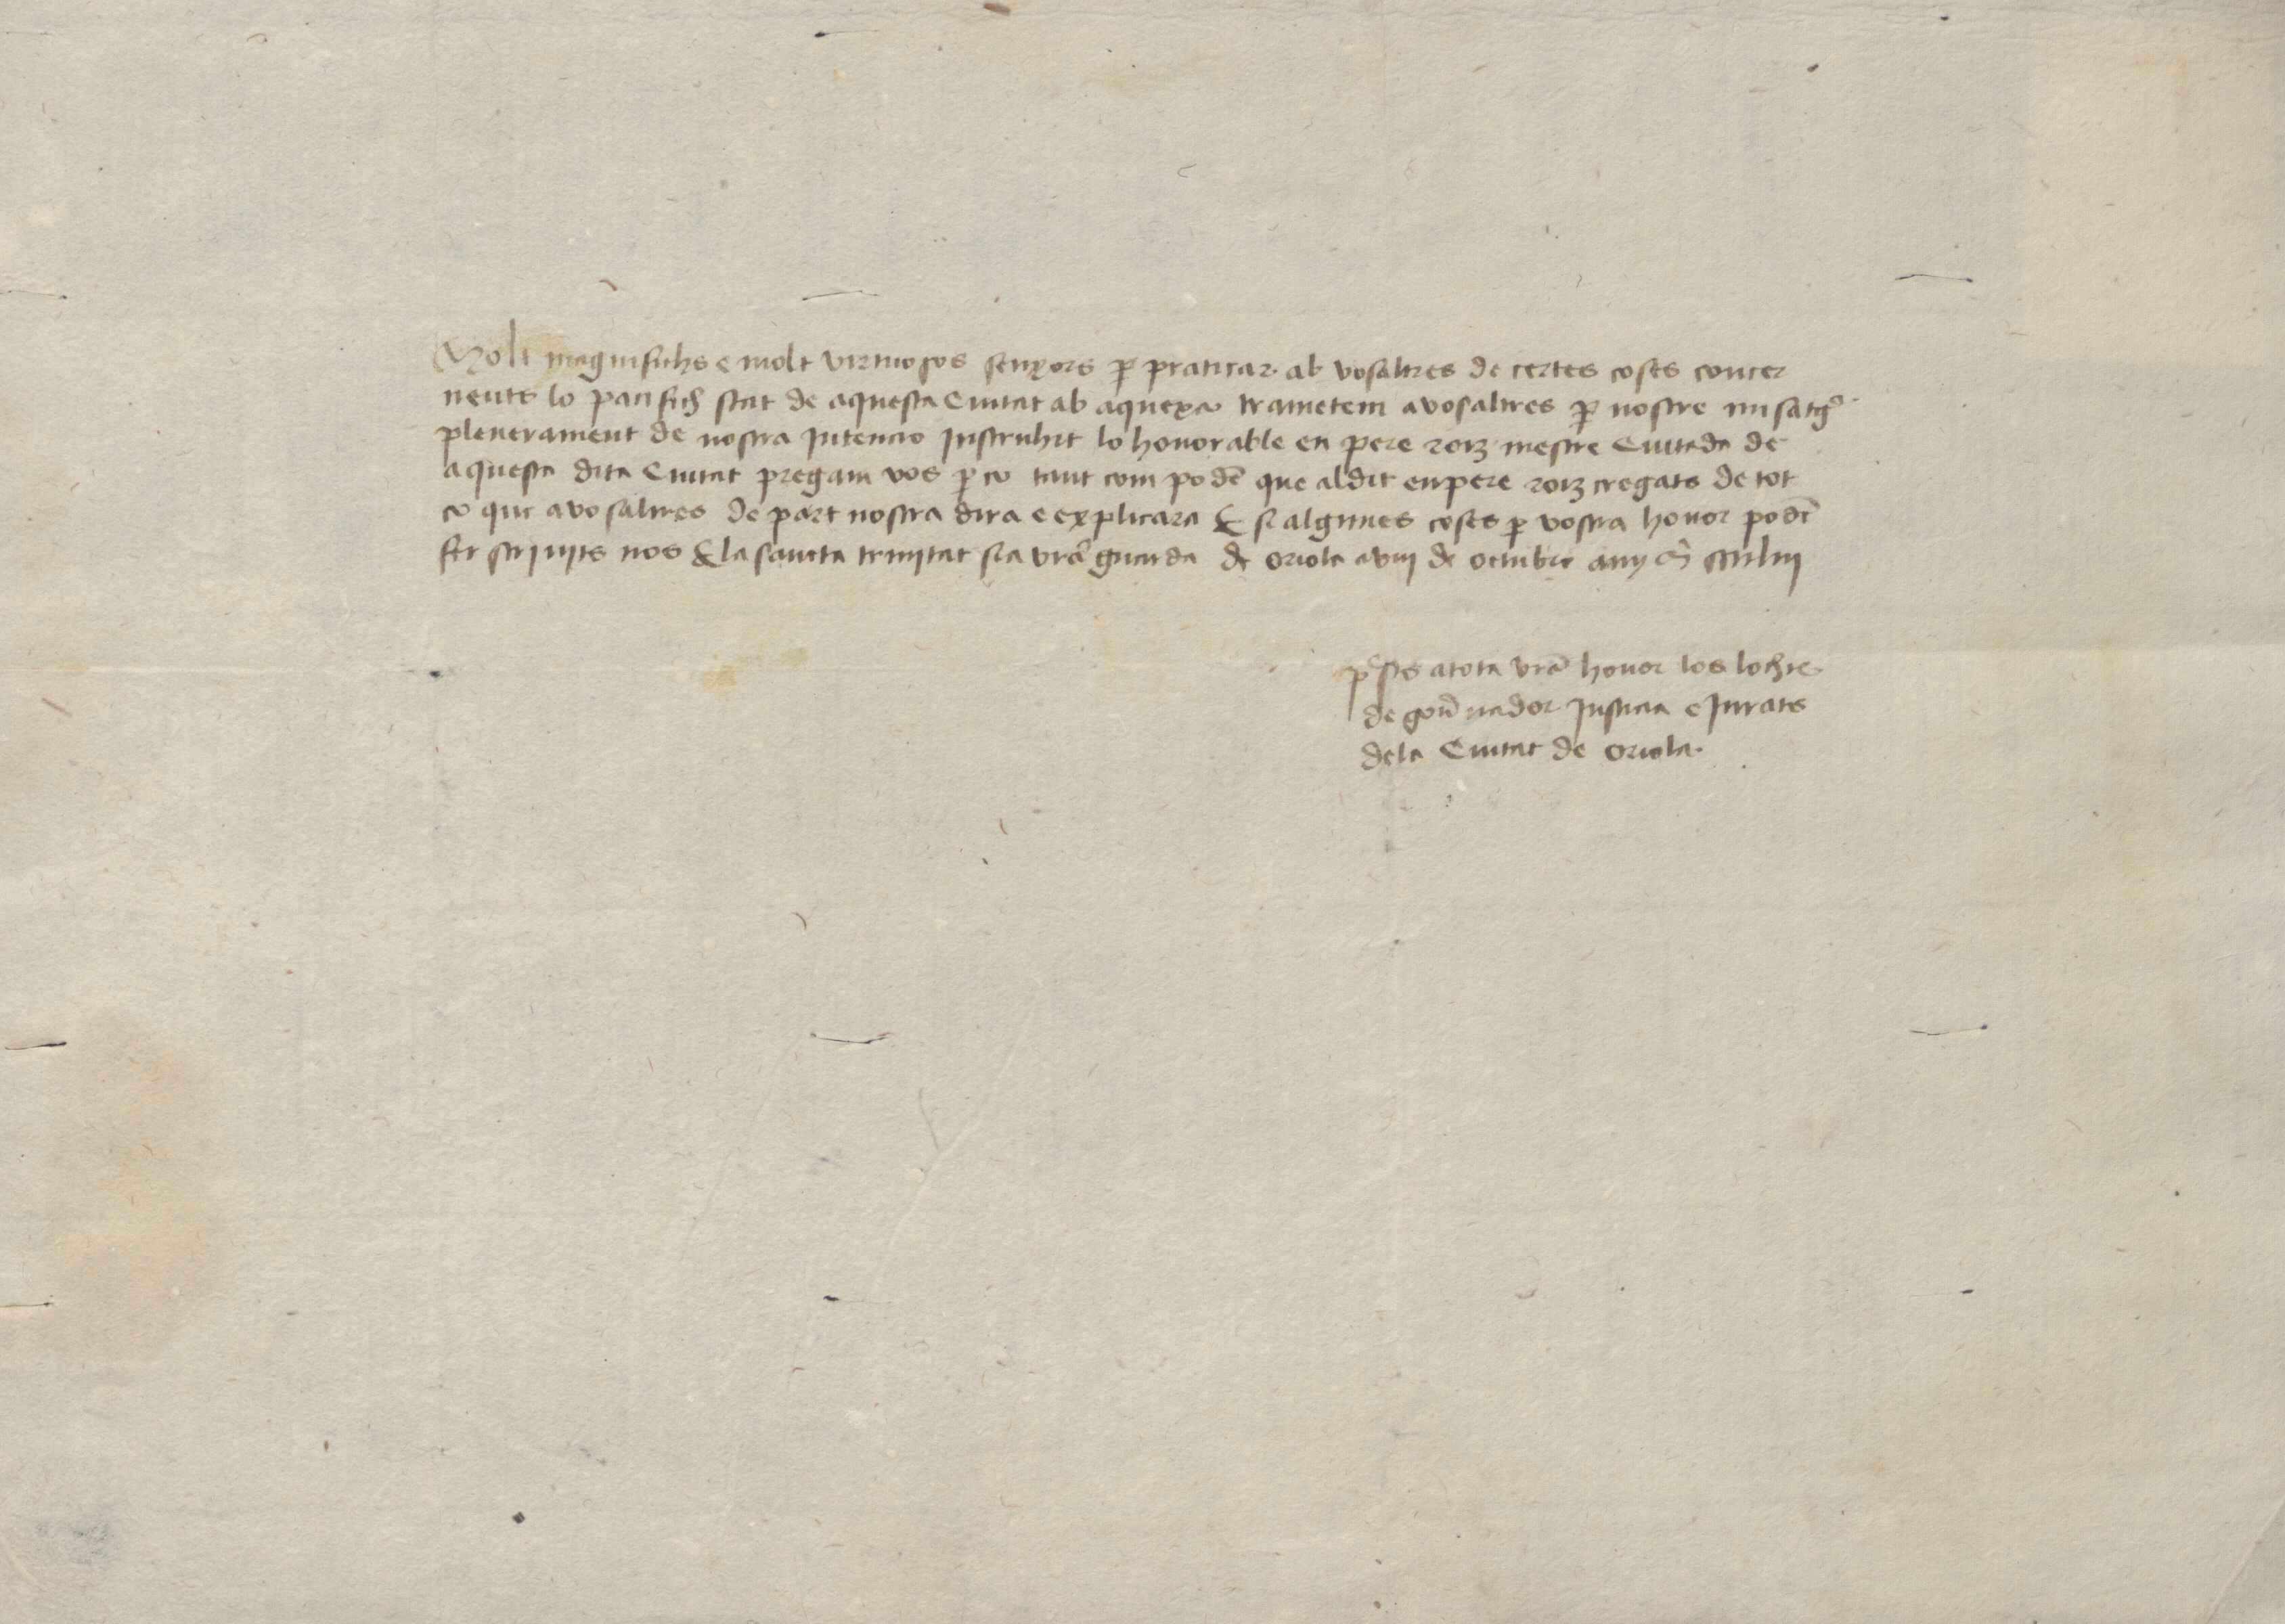 Molt magnifichs e molt virtuosos senyors p praticar ab vosaltres de certes coses concer
nents lo pacifich stat de aquesta Ciutat ab aquexa trametem avosaltres p nostre misatgº
plenerament de nostra Intencio Instruhit lo honorable en pere roiz mestre Ciutada de
aquesta dita Ciutat pregam vos p ço tant com podē que aldit enpere roiz cregats de tot
ço que avosaltres de part nostra dira e explicara & si algunes coses p vostra honor podē
fer scrivits nos & la sancta trinitat sia vrā guarda de oriola a viii de octubre any
psts atota vrā honor los lochtē
de gov̄nador Justicia e Jurats
dela Ciutat de oriola